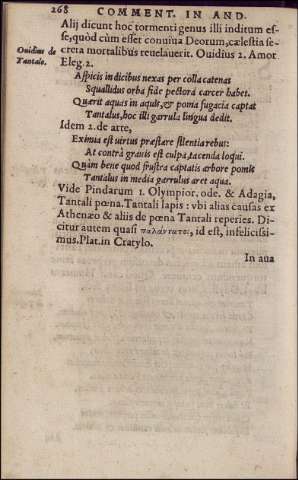 268 COMMENT. IN AND.
Alij dicunt hoc tormenti genus illi inditum es-
se, quòd cùm esset conuiua Deorum, cælestia se-
Ouidius de creta mortalibus reuelauerit. Ouidius 2. Amor
Tantalo. Eleg. 2.
Aspicis indicibus nexas per colla catenas
Squallidus orba fide pectora carcer habet.
Quærit aquas in aquis, & poma fugacia captat
Tantalus, hoc illi garrula lingua dedit.
Idem 2. de arte,
Exímia est uirtus præstare silentia rebus:
At contrà grauis est culpa, tacenda loqui.
Quàm bene quod frustra captatis arbore pomis
Tantalus in media garrulus aret aqua.
Vide Pindarum 1. Olympior. ode. & Adagia,
Tantali pœna. Tantali lapis: vbi alias causas ex
Athenæo & aliis de pœna Tantali reperies. Di-
citur autem quasi ταλάντατος, id est, infelicissi-
mus. Plat. in Cratylo.
In aua